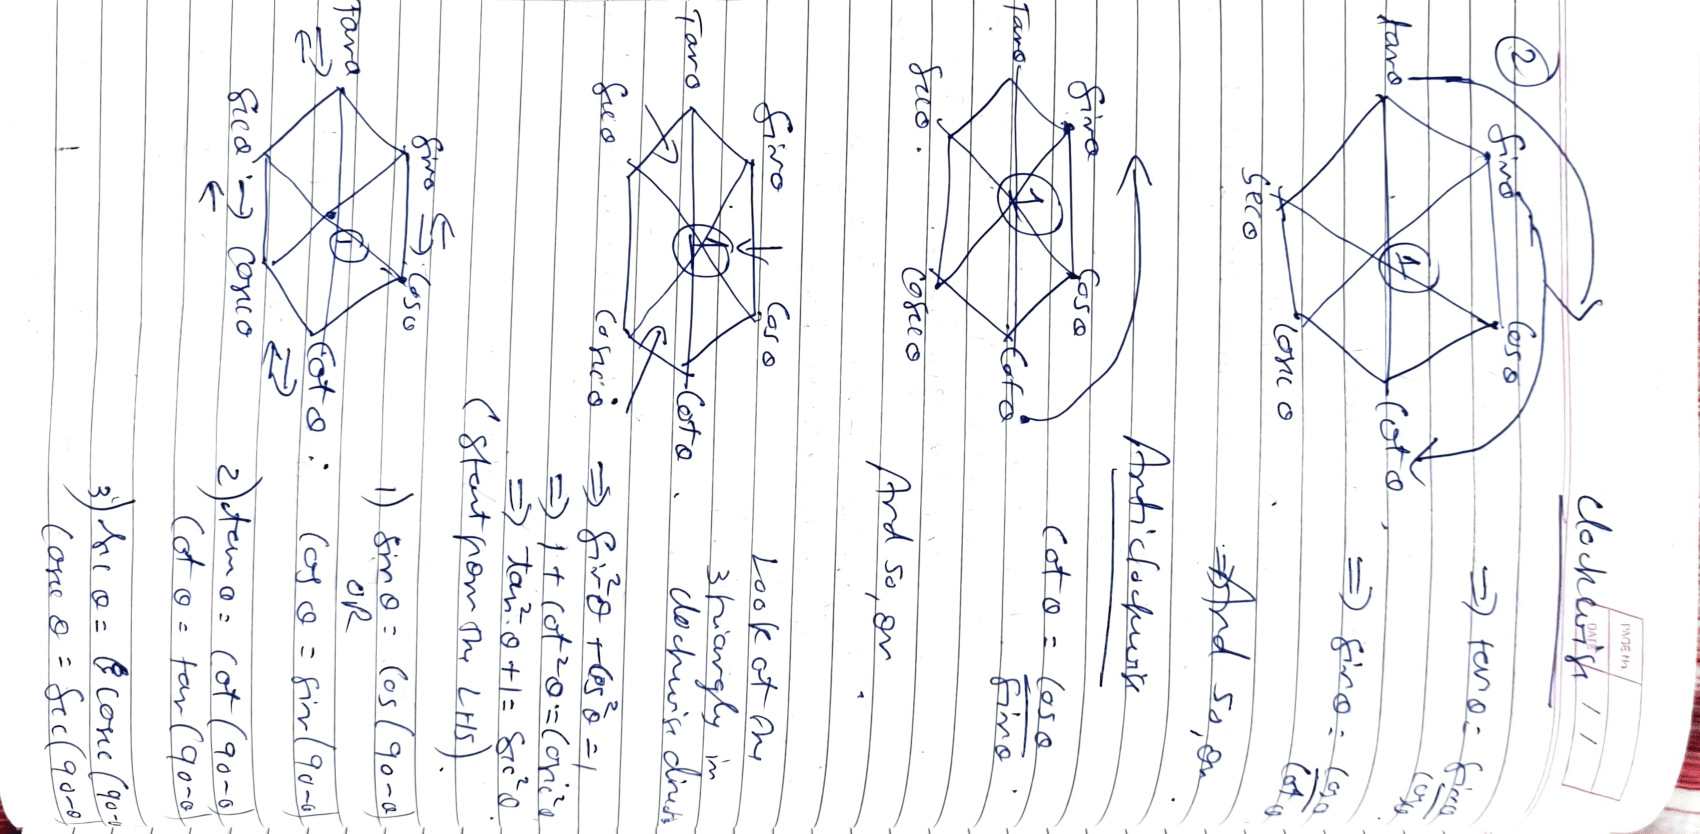 PAGE NO
DATE / /
②
Clockwise
tanθ
Sinθ
Cosθ
1
Secθ
Cosecθ
Cotθ
⇒ tanθ = Sinθ/Cosθ
⇒ Sinθ = Cosθ/Cotθ
⇒ And So, On
Anticlockwise
Tanθ
Sinθ
Cosθ
1
Secθ
Cosecθ
Cotθ
Cotθ = Cosθ/Sinθ
And So, On
Tanθ
Sinθ
Cosθ
1
Secθ
Cosecθ
Cotθ
Look at the
3 triangly in
clockwise directn
⇒ Sin²θ + Cos²θ = 1
⇒ 1 + Cot²θ = Cosec²θ
⇒ tan²θ + 1 = Sec²θ
(Start from the LHS).
Tanθ
Sinθ
Cosθ
1
Secθ
Cosecθ
Cotθ
1) Sinθ = Cos(90-θ)
OR
Cosθ = Sin(90-θ)
2) tanθ = Cot(90-θ)
Cotθ = tan(90-θ)
3) Secθ = Cosec(90-θ)
Cosecθ = Sec(90-θ)